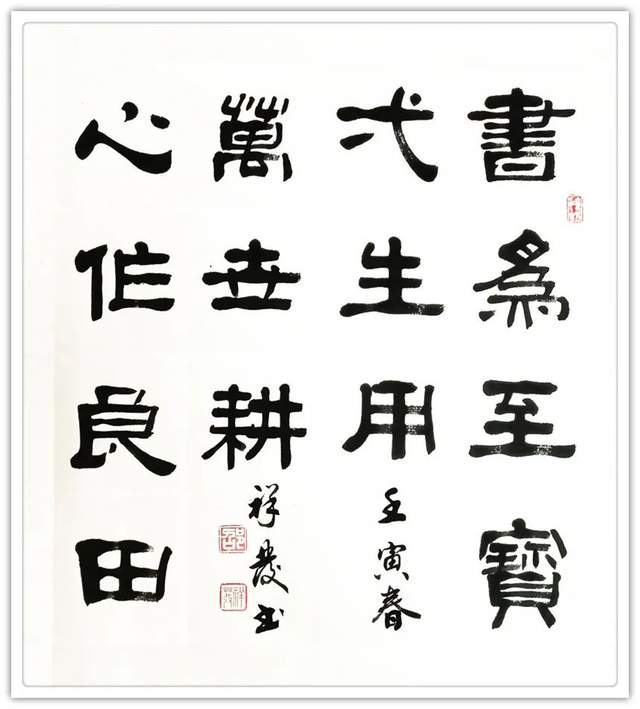 書為至寶
弌生用
心作良田
萬世耕
壬寅春
祥發书